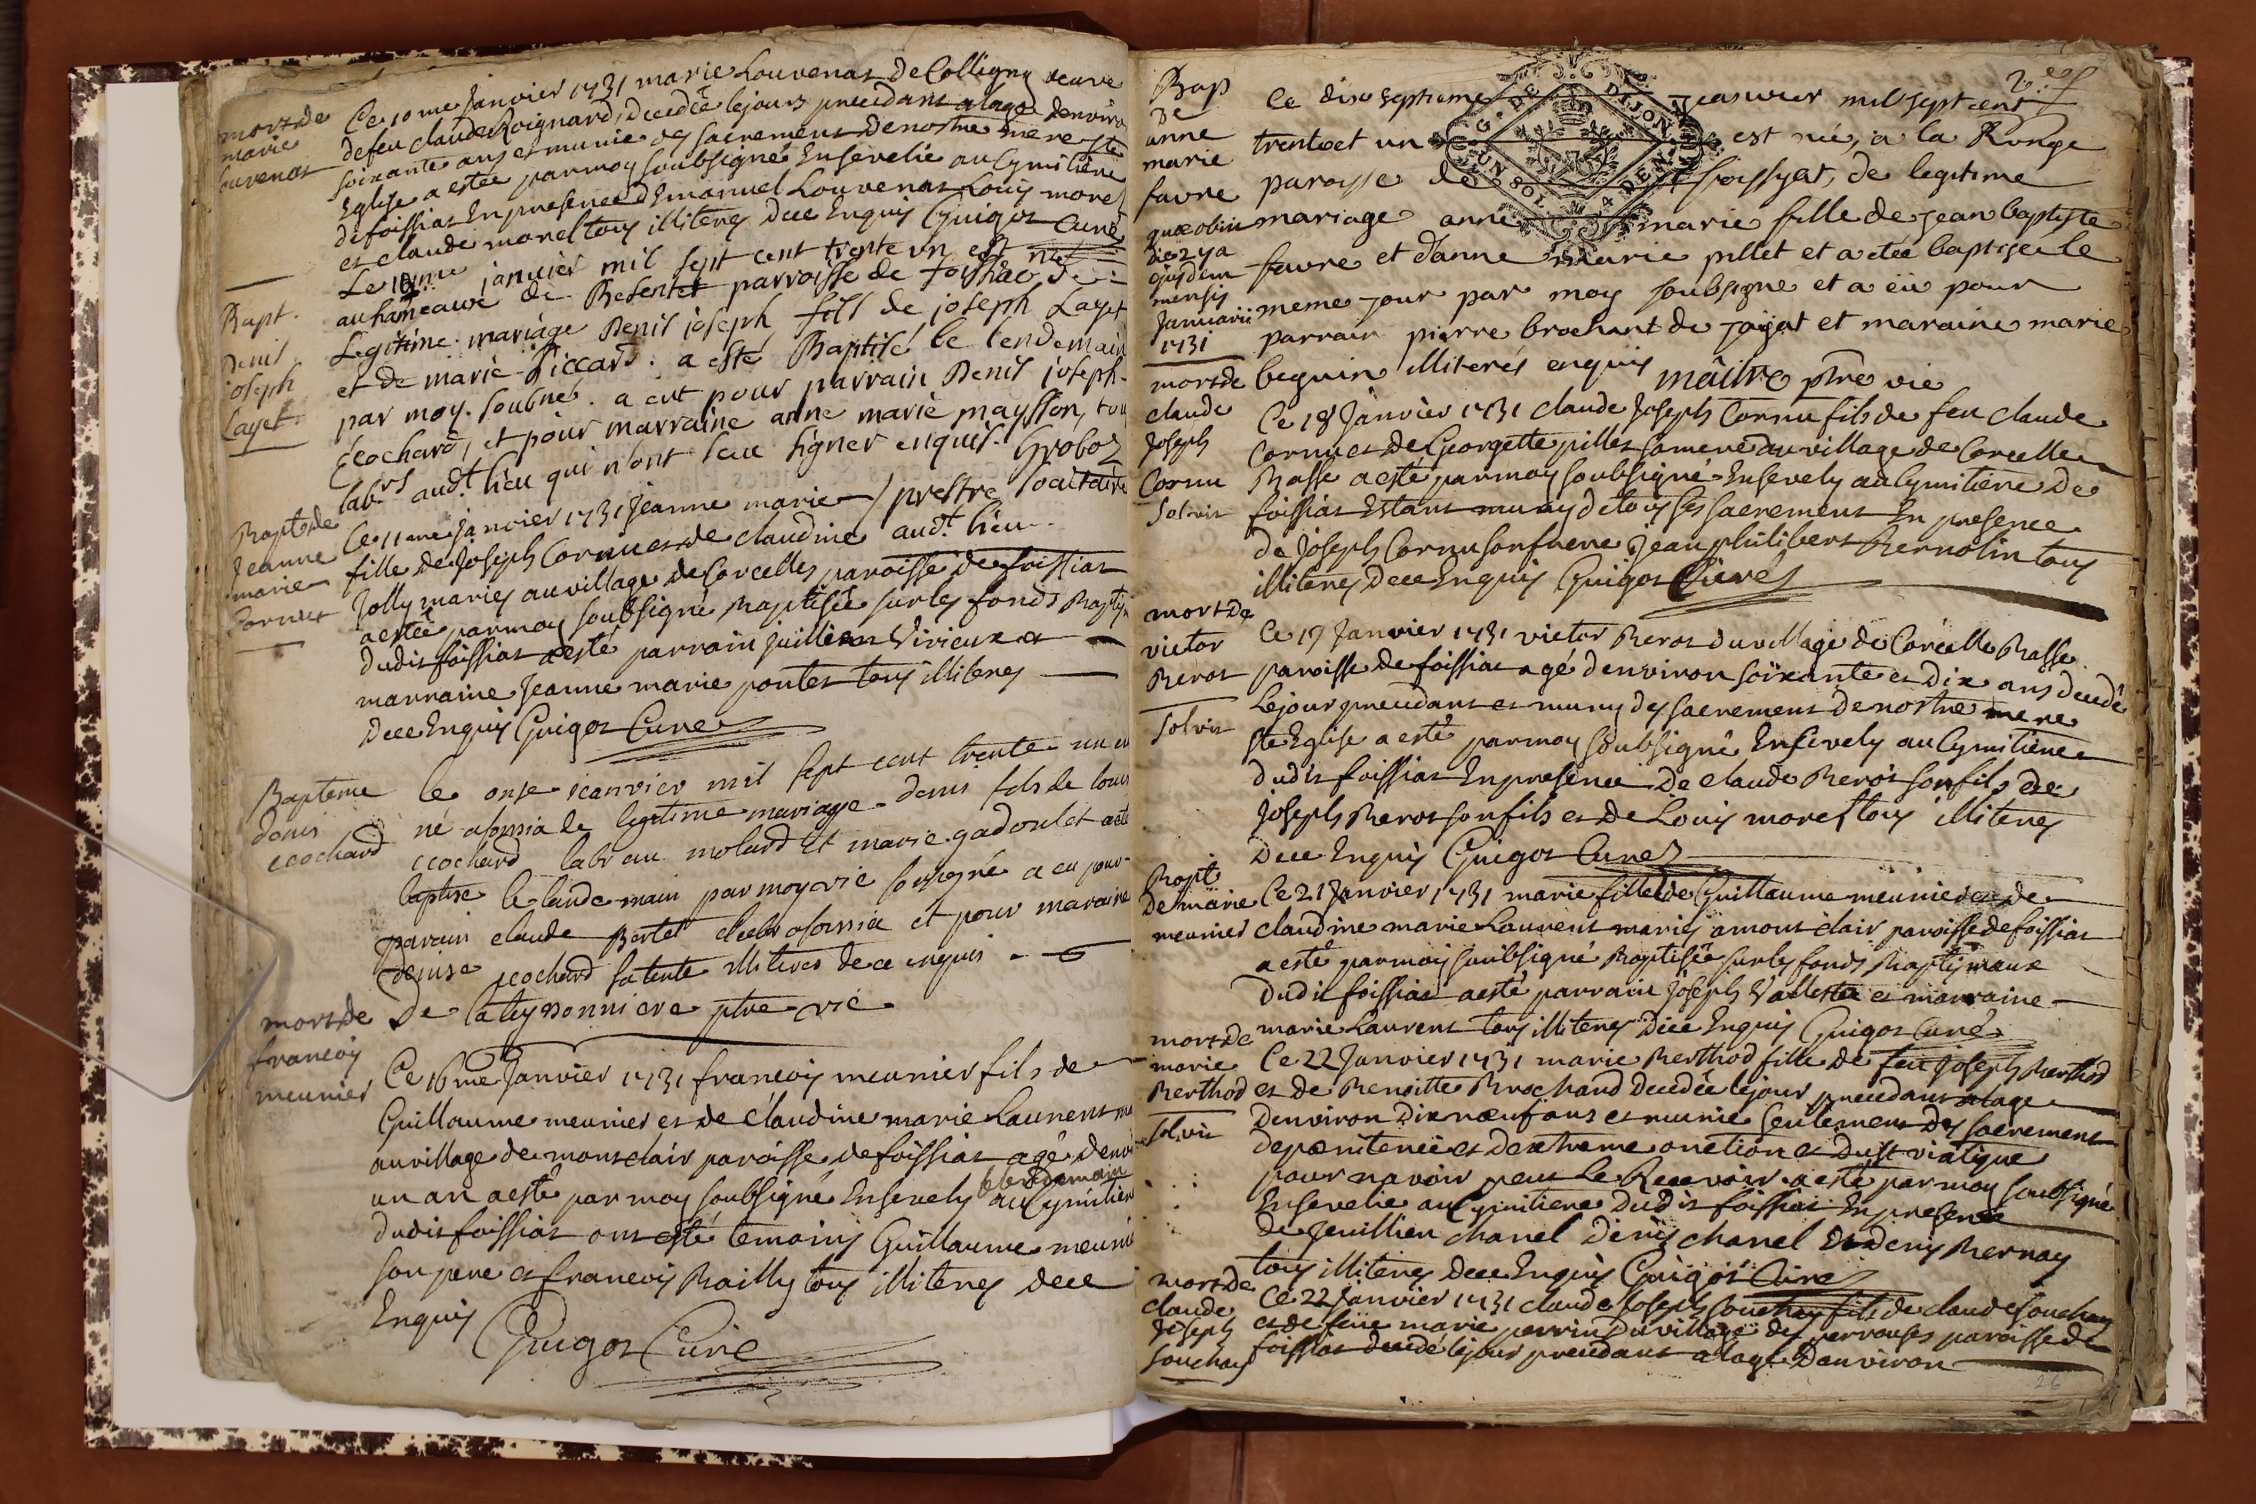 mort de
marie
louvenat
Ce 10me Janvier 1731 marie Louvenat de Colligny veuve
de feu claude Roignard, decedée le jours precedant a lage denviro
soixante ans et munie des sacrement de nostre mere ste
Eglise a estée parmoy soubsigné Ensevelie au Cymitiere
de foissiat En presence dEmanuel Louvenat Louis morel
et claude morel tous illiteres dece Enquis Guigot Curé
Bapt.
Denis
joseph
Layet
Le 10me janvier mil sept cent trente un est né
au hameaux de parroisse de foissiac de
Legitime mariage Denis joseph fils de joseph Layet
et de marie Piccard. a esté Baptisé le lendemain
par moy. soubné. a eut pour parrain Denis joseph
Ecochard, et pour marraine anne marie mayssion, tou
labrs audt. lieu qui n'ont sceu signer enquis. Groboz
prestre societaire
audt. lieu
Bapt de
Jeanne
marie
Cornut
Ce 11me Janvier 1731 Jeanne marie
fille de Joseph Cornu et de claudine
Jolly mariés au village de Corcelles paroisse de foissiat
a estée parmoy soubsigné Baptisée sur les fonds Baptism
dudit foissiat a esté parrain juillien Vivieux et
marraine Jeanne marie pontet tous illiteres
dece Enquis Guigot Curé
Bapteme
denis
ecochard
le onze jeanvier mil sept cent trente un e
né a fornia de legitime mariage denis fils de louis
ecochard labr au molard et marie gadoulet a ete
baptise le lande main par moy vic sousigné a eu pour
parain claude Bertet a fornia et pour maraine
denise ecochard sa tente illiteres de ce enquis
De lateyssonniere ptre vic
mort de
francois
meunier
Ce 16me Janvier 1731 francois meunier fils de
Guillaume meunier et de claudine marie Laurent ma
au village de montclair paroisse de foissiat agé denvi
un an a esté par moy soubsigné Ensevely le lendemain au Cymitiere
dudit foissiat ont esté temoins Guillaume meunie
son pere et francois Bailly tous illiteres dece
Enquis
Guigot Curé
Bap
De
anne
marie
favre
quæ obiit
die 27a
ejusdem
mensis
Januarii
1731
G. DE DIJON
UN SOL 4 DEN.
Ce dixseptieme jeanvier mil sept cent
trente et un est née, a la Ronge
paroisse de foissyat, de legitime
mariage anne marie fille de jean baptiste
favre et d'anne marie pillet et a etée baptisee le
meme jour par moy soubsigne et a eü pour
parrain pierre brochart de jayat et maraine marie
beguin illiterés enquis maitre ptre vic
mort de
claude
Joseph
Cornu
Solvit
Ce 18 Janvier 1731 claude Joseph Cornu fils de feu claude
Cornu et de Georgette pillet sa mere du village de Corcelle
Basse a esté parmoy soubsigné Ensevely au Cymitiere de
foissiat Estant muny de tous les sacrement En presence
de Joseph Cornu son frere Jean philibert Bernolin tous
illiteres dece Enquis Guigot Curé
mort de
victor
Berot
Solvit
Ce 19 Janvier 1731 victor Berot du village de Corcelle Basse
paroisse de foissiat agé denviron soixante et dix ans decedé
Le jour precedant et muny des sacrement de nostre mere
ste Eglise a esté parmoy soubsigné Ensevely au Cymitiere
dudit foissiat En presence de claude Berot son fils de
Joseph Berot son fils et de Louis morel tous illiteres
dece Enquis Guigot Curé
Bapt
De marie
meunier
Ce 21 Janvier 1731 marie fille de Guillaume meunier et de
claudine marie Laurent mariés a mont clair paroisse de foissiat
a esté parmoy soubsigné Baptisée sur les fonds Baptismaux
dudit foissiat a esté parrain Joseph Vallette et marraine
marie Laurent tous illiteres dece Enquis Guigot Curé
mort de
marie
Berthod
Solvit
Ce 22 Janvier 1731 marie Berthod fille de feu Joseph Berthod
et de Benoitte Brochard decedée le jour precedant a lage
denviron dix nœuf ans et munie seulement des sacrement
de pœnitence et dextreme onction et du st viatique
pour navoir peut Le Recevoir a esté parmoy soubsigné
Ensevelie au Cymitiere dudit foissiat En presence
de Jeuillien chanel denis chanel et denis Bernay
tous illiteres dece Enquis Guigot Curé
mort de
claude
Joseph
souchay
Ce 22 Janvier 1731 claude Joseph souchay fils de claude souchay
et de feüe marie perrin du village des perrouses paroisse de
foissiat decedé le jour precedant a lage denviron
26